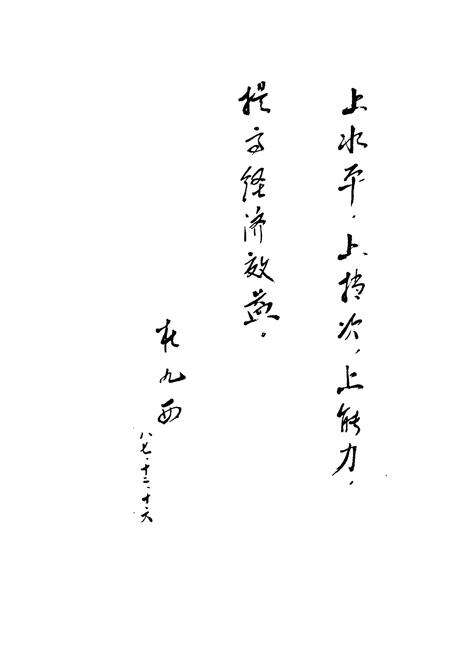 上水平，上档次，上能力，
提高经济效益。
九西
八七·十二·十六